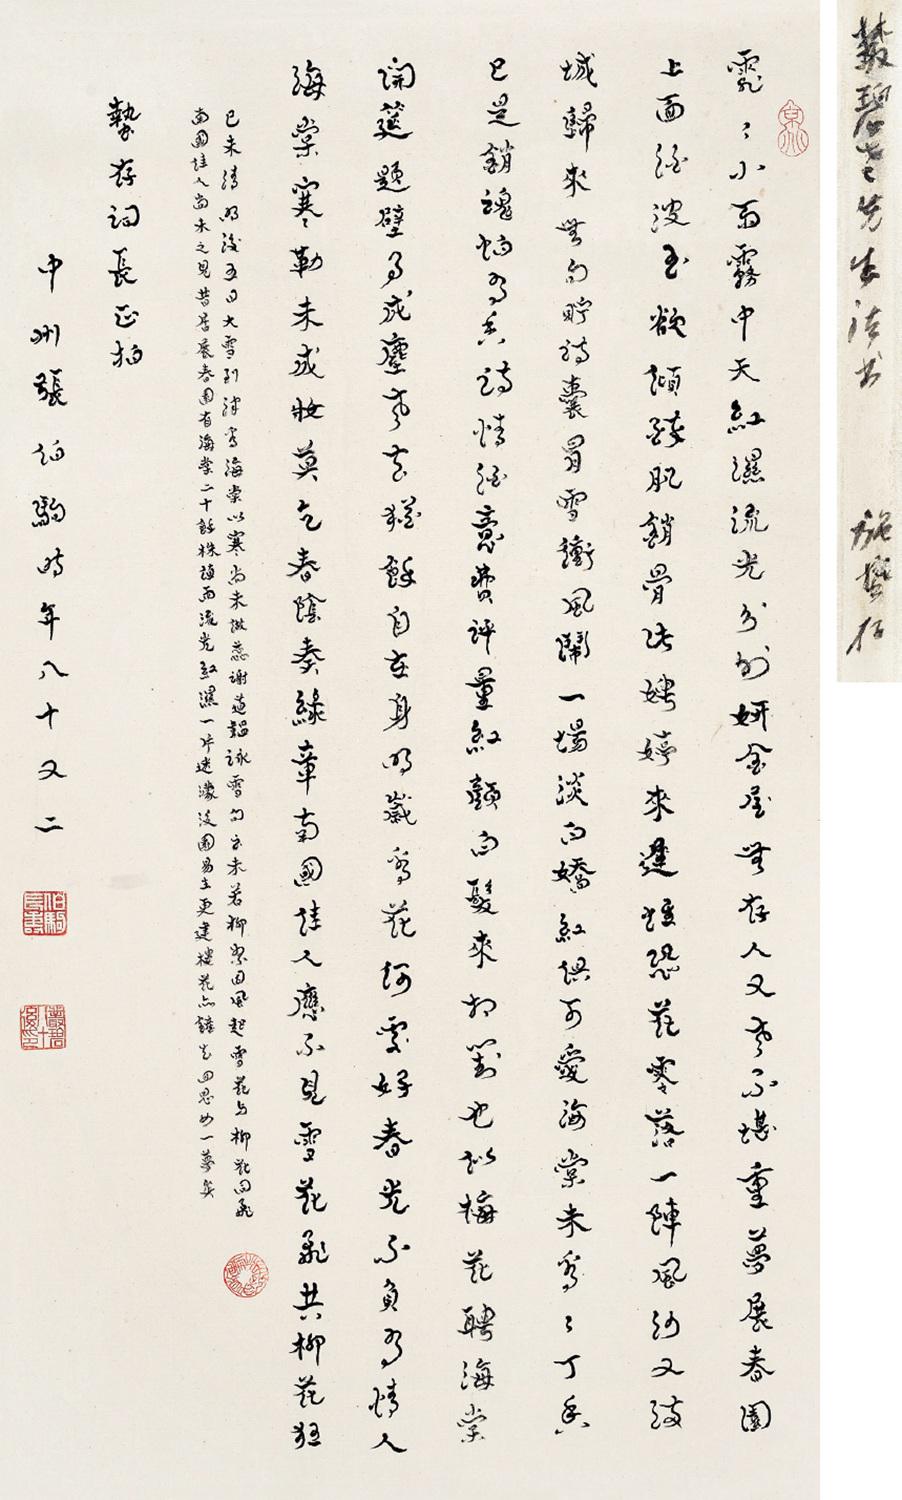 霏〻小雨霧中天紅濕流光分外妍金屋無存人又老不堪重夢展春園
上面酒波玉欲傾酥肌銷骨比娉婷來遲唯恐花零落一陣風沙又滿
城歸來無句貯詩囊冒雪衝風鬧一場淡白嬌紅俱可愛海棠未看〻丁香
已是銷魂為香詩情酒意費評量紅顏白髮來相對也似梅花聘海棠
開筵題壁事成塵老去猶餘自在身明歲看花何處好春光不負多情人
海棠寒勒未成妝莫乞春陰奏綠章南國佳人應不見雪花飛共柳花狂
己未清明後五日大雪到津看海棠以寒尚未放蕊謝道韞詠雪句云未若柳絮因風起雪花與柳花同飛
南國佳人尚未之見昔居展春園有海棠二十餘株雨流光紅濕一片迷濛後園易主更建樓花亦去回思如一夢矣
蟄存詞長正拍
中州張伯駒時年八十又二
叢碧老先生法書 施蟄存